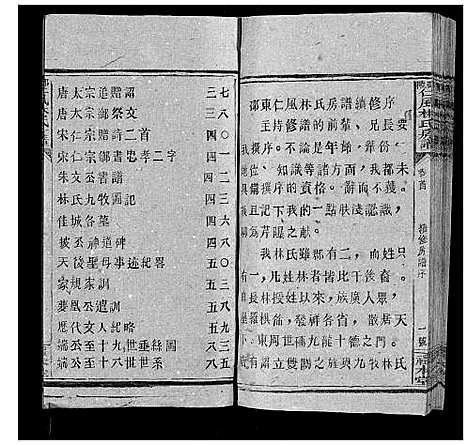 邵東仁風林氏房譜續修序
主持修譜的前輩、兄長要
我撰序。但無論年齡、輩份、
地位、知識等諸方面，我都未
具備撰序的資格。辭而不獲，
姑且記下我的一點膚淺認識，
以為芹曝之献。
我林氏雖郡有二，而姓只
有一，凡姓林者皆比干後裔。
自長林授姓以來，族廣人眾，
星羅棋佈，發祥各省，散居天
下。東周世傳九龍十德之門。
大唐詔立雙闕之旌與九牧林氏
卷首
續修房譜序
一號
唐太宗追贈詔 三七
唐太宗御祭文 三八
宋仁宗贈詩二首 四〇
宋仁宗御書忠孝二字 四一
朱文公舊譜 四二
林氏九牧圖記 四三
佳城各墓 四六
披公神道碑 四八
天後聖母事迹紀畧 五〇
家規家訓 五五
葵凰公遺訓 五八
歷代文人紀略 七九
端公至十九世垂絲圖 八三
端公至十九世世系 八五